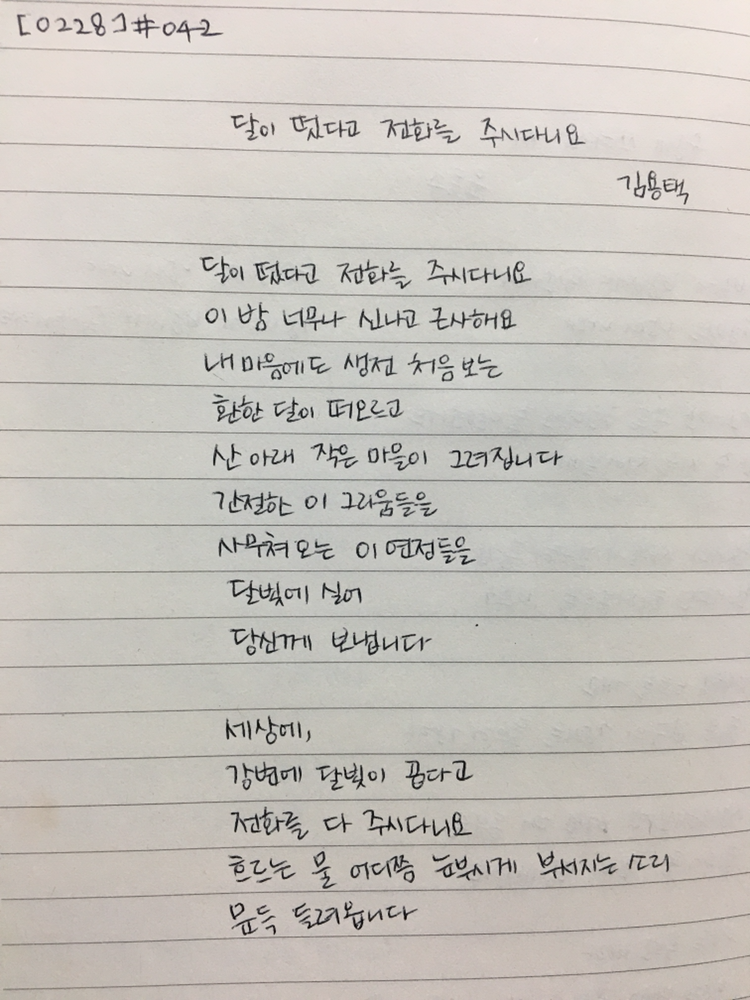 [0228]#042
달이 떴다고 전화를 주시다니요
김용택
달이 떴다고 전화를 주시다니요
이 밤 너무나 신나고 근사해요
내 마음에도 생전 처음 보는
환한 달이 떠오르고
산 아래 작은 마을이 그려집니다
간절한 이 그리움들을
사무쳐 오는 이 연정들을
달빛에 실어
당신께 보냅니다
세상에,
강변에 달빛이 곱다고
전화를 다 주시다니요
흐르는 물 어디쯤 눈부시게 부서지는 소리
문득 들려옵니다